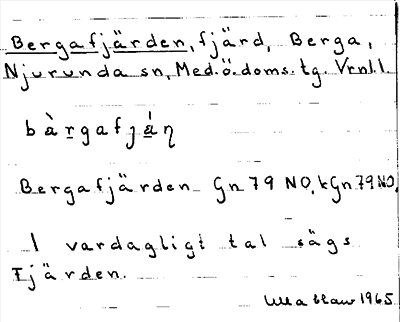 Bergafjärden, fjärd, Berga,
Njurunda sn, Med.ö.doms.tg. Vrnl.l.
bàrgafján
Bergafjärden Gn 79 NO, kGn 79 NO.
I vardagligt tal sägs
Fjärden.
Ulla 1965